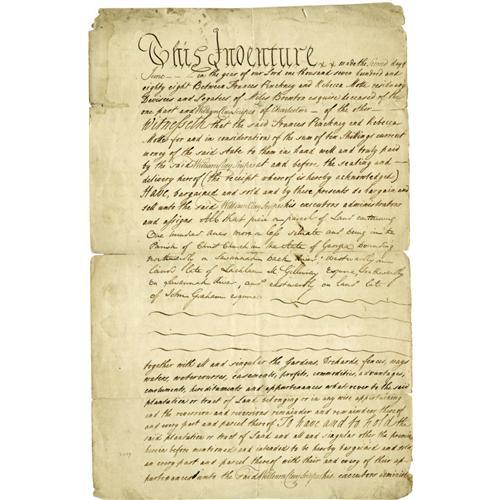 This Indenture x x made the second day of
June - - - in the year of our Lord one thousand seven hundred and
eighty eight Between Frances Pinckney and Rebecca Motte residuary
Devisees and Legatees of Miles Brewton esquire deceased of the
one part and William Clay Snipes of Charleston - of the other
Witnesseth that the said Frances Pinckney and Rebecca
Motte for and in consideration of the sum of ten Shillings current
money of the said State to them in hand well and truly paid
by the said William Clay Snipes at and before the sealing and -
delivery hereof (the receipt whereof is hereby acknowledged)
Have bargained and sold and by these presents do bargain and
sell unto the said William Clay Snipes his executors administrators
and assigns All that piece or parcel of Land containing
One hundred acres more or less situate and being in the
Parish of Christ Church in the State of Georgia bounding
northwardly on Savannah Back River, Westwardly on
Land late of Lachlan McGillivray Esquire Southwardly
by Savannah River, and eastwardly on land late
of John Graham esquire
together with all and singular the Gardens, Orchards, fences, ways
waters, watercourses, easements, profits, commodities, advantages,
emoluments, hereditaments and appurtenances whatsoever to the said
plantation or tract of Land belonging or in any wise appertaining
and the reversion and reversions remainder and remainders thereof
and every part and parcel thereof To have and to hold the
said plantation or tract of Land and all and singular other the premises
herein before mentioned and intended to be hereby bargained and sold
and every part and parcel thereof with their and every of their ap
purtenances unto the said William Clay Snipes his executors administra